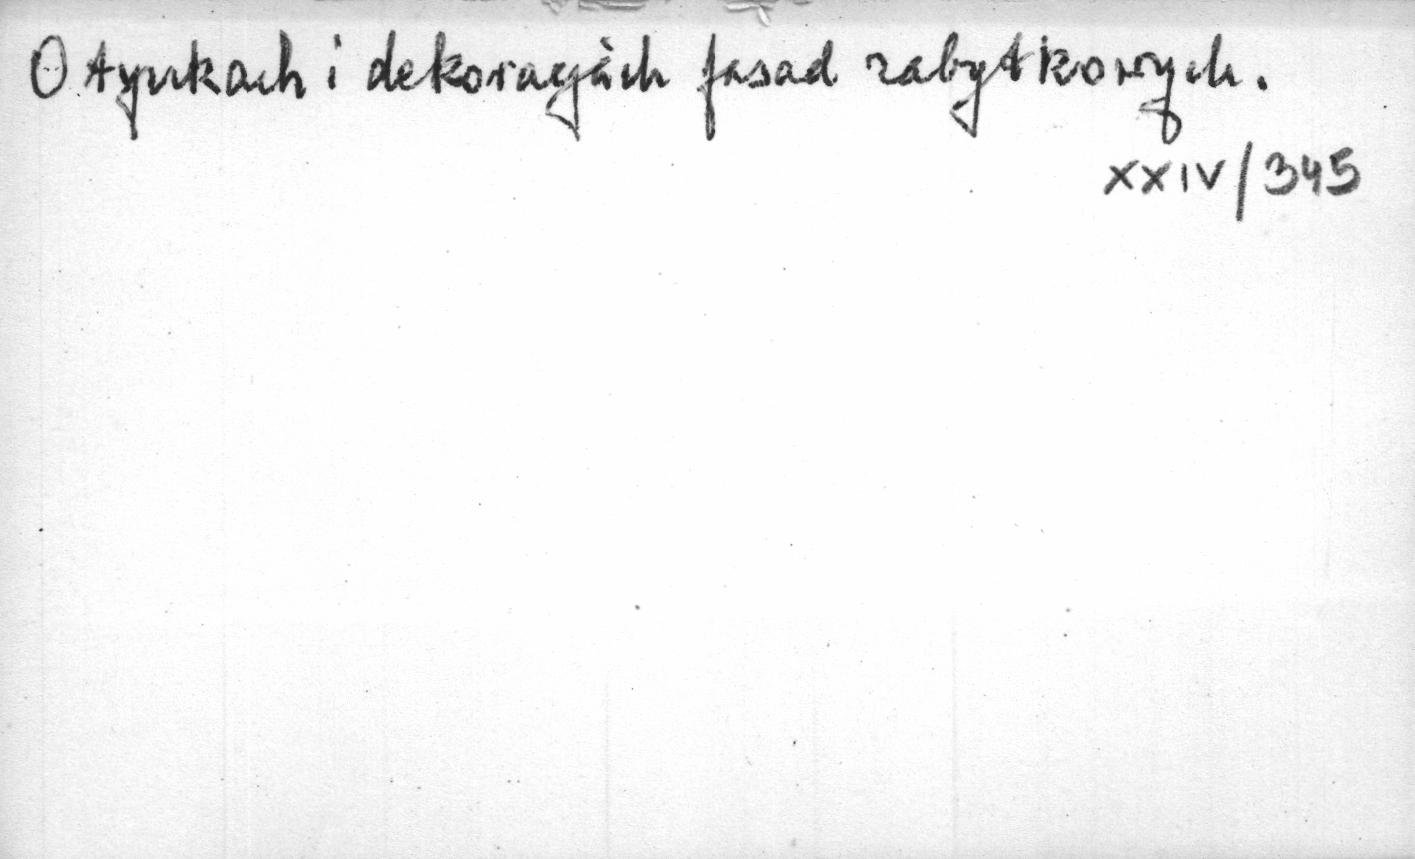 O tynkach i dekoracjach fasad zabytkowych.
XXIV/345